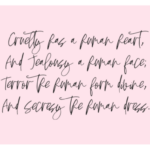 Cruelty has a human heart,
And Jealousy a human face;
Terror the human form divine,
And Secresy the human dress.